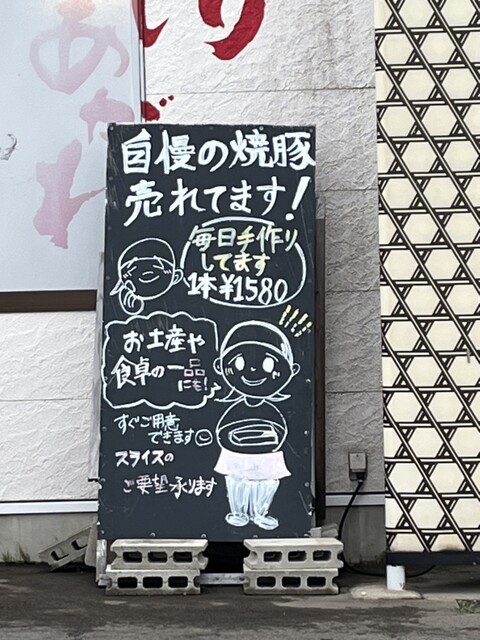 自慢の焼豚
売れてます!
毎日手作り
してます
1本¥1580
お土産や
食卓の一品
にも!
すぐご用意
できます☺
スライスの
ご要望承ります